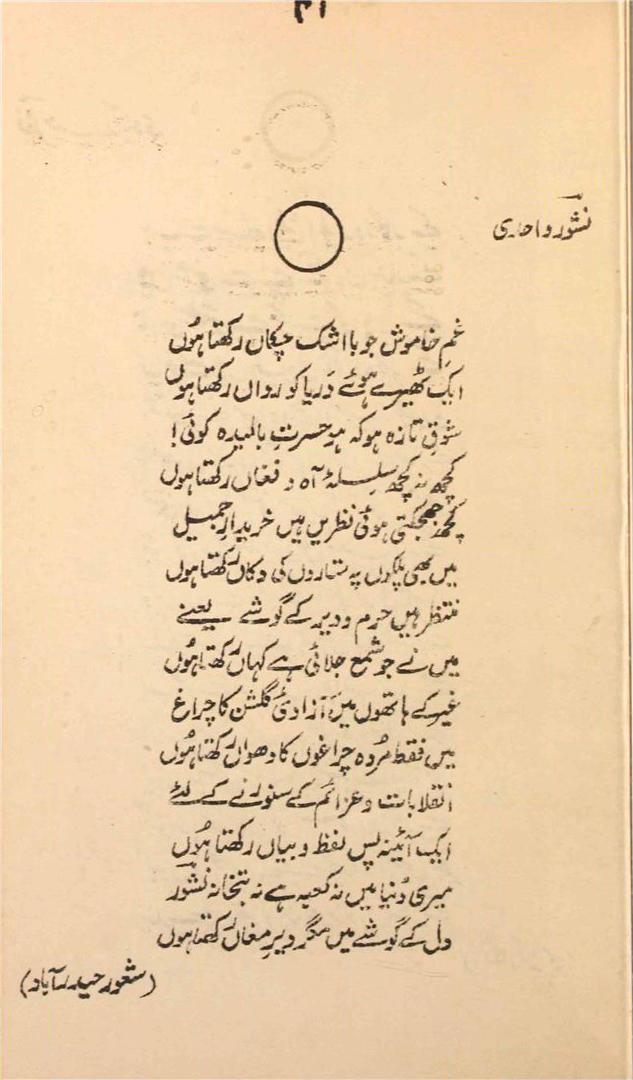 ۳۱
نشور واحدی
غمِ خاموش جو با اشک چکاں رکھتا ہُوں
ایک ٹھیرے ہوئے دَریا کو رواں رکھتا ہوں
شوقِ تازہ ہو کہ ہو حسرتِ بالیدہ کوئی!
کچھ نہ کچھ سِلسلۂ آہ و فغاں رکھتا ہوں
کچھ جھجکتی ہوئی نظریں ہیں خریدارِ جمیل
میں بھی پلکوں پہ ستاروں کی دکاں رکھتا ہوں
منتظر ہیں حرم و دیر کے گوشے یعنے
میں نے جو شمع جلائی ہے کہاں رکھتا ہُوں
غیر کے ہاتھوں میں آزادیٔ گلشن کا چراغ
میں فقط مُردہ چراغوں کا دھواں رکھتا ہُوں
انقلابات و عزائم کے سنورنے کے لئے
ایک آئینہ پسِ لفظ و بیاں رکھتا ہُوں
میری دُنیا میں نہ کعبہ ہے نہ بتخانہ نشور
دل کے گوشے میں مگر دیرِ مغاں رکھتا ہوں
(شعور حیدرآباد)